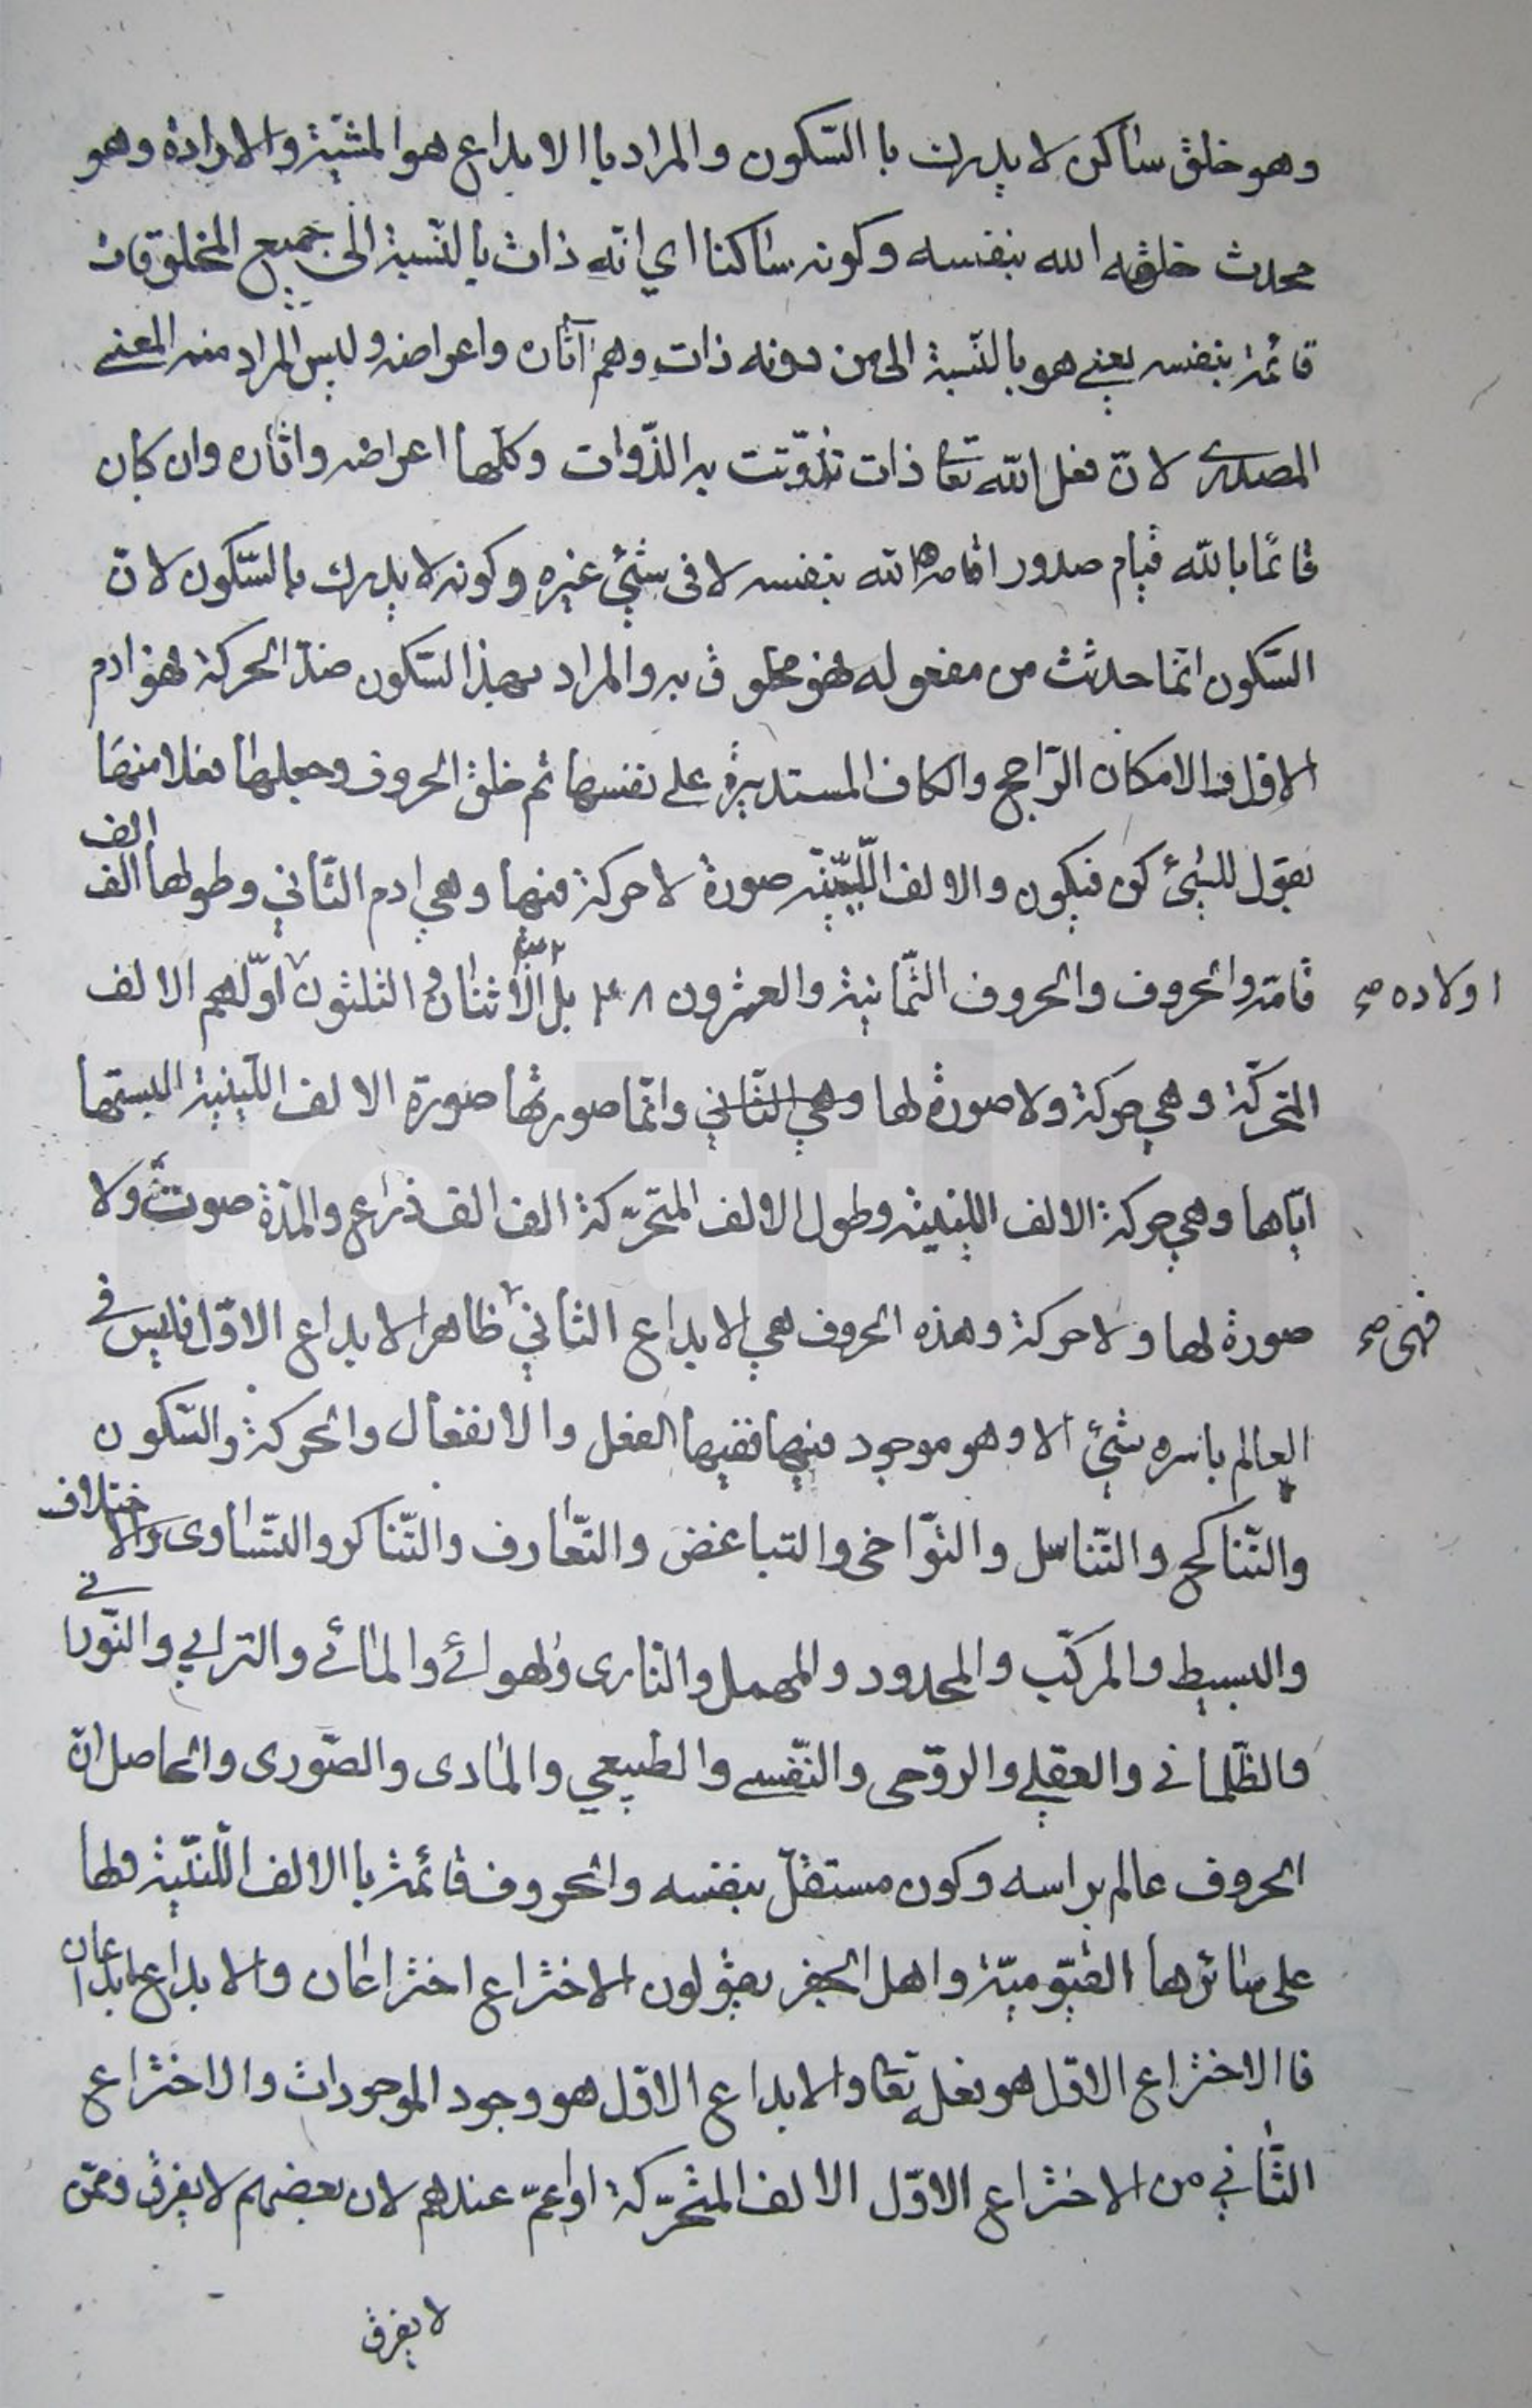 وهو خلق ساكن لا يدرك با السّكون والمراد با الابداع هو المشيّة والارادة وهو
محدث خلقه الله بنفسه وكونه ساكنا اي انّه ذات بالنّسبة الى جميع المخلوقات
قائمة بنفسه يعني هو بالنّسبة الى من دونه ذات وهم آثاره واعراضه وليس المراد منه المعنى
المصدرى لانّ فعل الله تعا ذات تذوّتت به الذّوات وكلّها اعراضه واثاره وان كان
قائمًا بالله قيام صدور اقامه الله بنفسه لا فى شئ غيره وكونه لا يدرك بالسّكون لانّ
السّكون انّما حدثت من مفعوله فهو مخلوق به والمراد بهذا السّكون ضدّ الحركة فهو ادم
الاوّل والامكان الرّاجح والكاف المستديرة على نفسها ثم خلق الحروف وجعلها فعلا منها
يقول للشئ كن فيكون والالف اللّيّنة صورة لا حركة فيها وهي ادم الثّاني وطولها الف الف
قامة والحروف والحروف الثّمانية والعشرون ٢٨ بل الاثنان و الثلثون اولاده اوّلهم الالف
المتحرّكة وهي حركة ولا صورة لها وهي الثّاني وانّما صورتها صورة الالف اللّينية البستها
ايّاها وهي حركة الالف اللينية وطول الالف المتحرّكة الف الف ذراع والمدّة صوت ولا
صورة لها ولا حركة وهذه الحروف هي الابداع الثاني فهى ظاهر الابداع الاوّل فليس في
العالم باسره شئ الا وهو موجود فيها ففيها الفعل والانفعال والحركة والسّكون
والتّناكح والتّناسل والتّواخى والتباغض والتّعارف والتّناكر والتّساوى والاختلاف
والبسيط والمركّب والمحدود والمهمل والنّارى والهوائي والمائي والترابي والنّوراني
والظّلماني والعقلي والرّوحى والنّفسي والطبيعي والمادى والصّورى والحاصل انّ
الحروف عالم براسه وكون مستقلّ بنفسه والحروف قائمة با الالف اللّينيّة ولها
على سائرها القيّوميّة واهل الجفر يقولون الاختراع اختراعان والابداع ابداعان
فا الاختراع الاوّل هو فعله تعا والابداع الاوّل هو وجود الموجودات والاختراع
الثّاني من الاختراع الاوّل الالف المتحرّكة او اعمّ عندهم لان بعضهم لا يفرق وممّن
لا يفرق